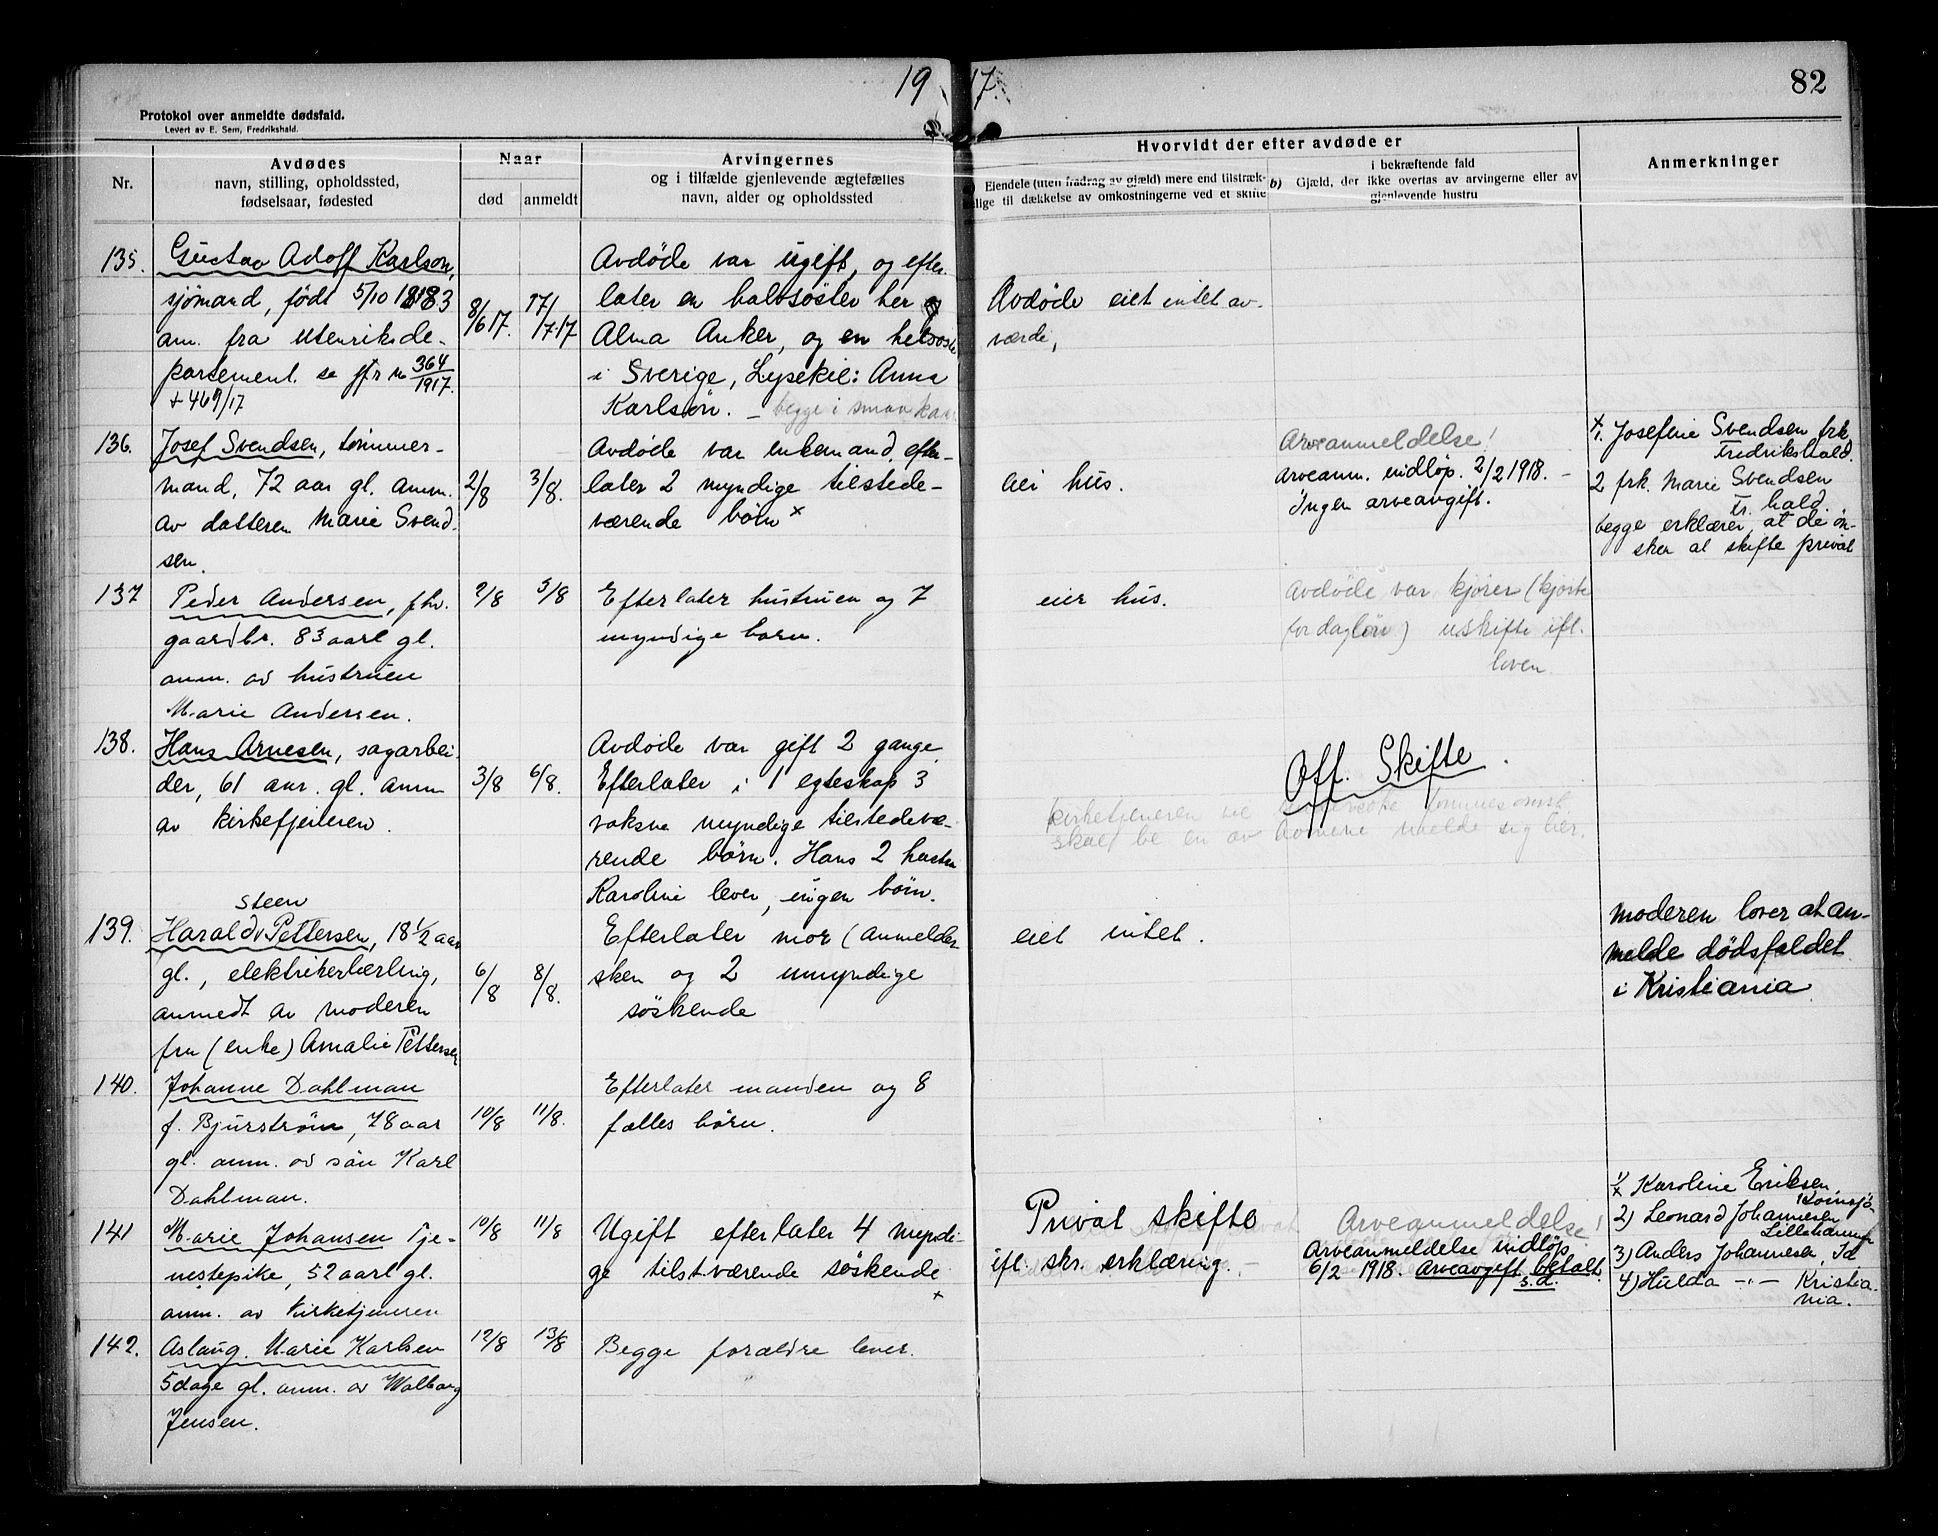 19 17.
82
Protokol over anmeldte dødsfald.
Levert av E. Sem, Fredrikshald.
Nr.
Avdødes
navn, stilling, opholdssted,
fødselsaar, fødested
Naar
død
anmeldt
Arvingernes
og i tilfælde gjenlevende ægtefælles
navn, alder og opholdssted
Hvorvidt der efter avdøde er
Eiendele (uten fradrag av gjæld) mere end tilstræk-
lige til dækkelse av omkostningerne ved et skifte
i bekræftende fald
b) Gjæld, der ikke overtas av arvingerne eller av
gjenlevende hustru
Anmerkninger
135. Gustav Adolf Karlson,
sjømand, født 5/10 1883
am. fra utenriksde-
partement. se jfr no 364/1917.
+ 469/17
8/6 17.
17/7.17
Avdøde var ugift, og efter
later en halvsøster her
Alma Anker, og en helsøste
i Sverige, Lysekil: Anna
Karlsøn. – begge i smaa kaar
Avdøde eiet intet av
værde,
136. Josef Svendsen, tømmer-
mand, 72 aar gl. anm.
av datteren Marie Svend-
sen.
2/8
3/8.
Avdøde var enkemand, efter-
later 2 myndige tilstede-
værende børn x
eier hus.
Arveanmeldelse!
Arveanm. indløp. 2/2 1918. –
Ingen arveavgift.
x 1. Josefine Svendsen frk
Fredrikshald.
2 frk. Marie Svendsen
Fr. hald.
begge erklærer, at de øn-
sker at skifte privat
137 Peder Andersen, fhv.
gaardbr. 83 aarl gl.
anm. av hustruen
Marie Andersen.
2/8
3/8
Efterlater hustruen og 7
myndige barn.
eier hus.
Avdøde var kjører (kjørte
for dagløn) uskifte ifl.
loven
138. Hans Arnesen, sagarbei-
der, 61 aar. gl. anm
av kirketjeneren.
3/8
6/8.
Avdøde var gift 2 gange.
Efterlater i 1 egteskap 3
voksne myndige tilstedevæ-
rende børn. Hans 2 hustru
Karoline lever, ingen børn.
Off. Skifte.
kirketjeneren
skal be en av sønnene melde sig her.
139. Harald Steen Pettersen, 18 1/2 aar
gl., elektrikerlærling,
anmedt av moderen
fru (enke) Amalie Pettersen
6/8
8/8.
Efterlater mor (anmelder-
sken og 2 umyndige
søskende
eiet intet.
moderen lover at an-
melde dødsfaldet
i Kristiania
140. Johanne Dahlman
f. Bjurstrøm, 78 aar
gl. anm. av søn Karl
Dahlman.
10/8
11/8.
Efterlater manden og 8
fælles børn.
141 Marie Johansen Tje-
nestepike, 52 aarl gl.
anm. av kirketjeneren
10/8
11/8
Ugift efterlater 4 myndi-
ge tilst.værende søskende
x
Privat skifte
ifl. skr. erklæring. –
Arveanmeldelse!
Arveanmeldelse indløp
6/2 1918. Arveavgift betalt
s.d.
1/x Karoline Eriksen,
Kornsjø
2) Leonard Johannesen
Lillehammer
3) Anders Johannesen, Id
4) Hulda –"– Kristia-
nia.
142. Aslaug Marie Karlsen
5 dage gl. anm. av Walborg
Jensen.
12/8
13/8
Begge forældre lever.